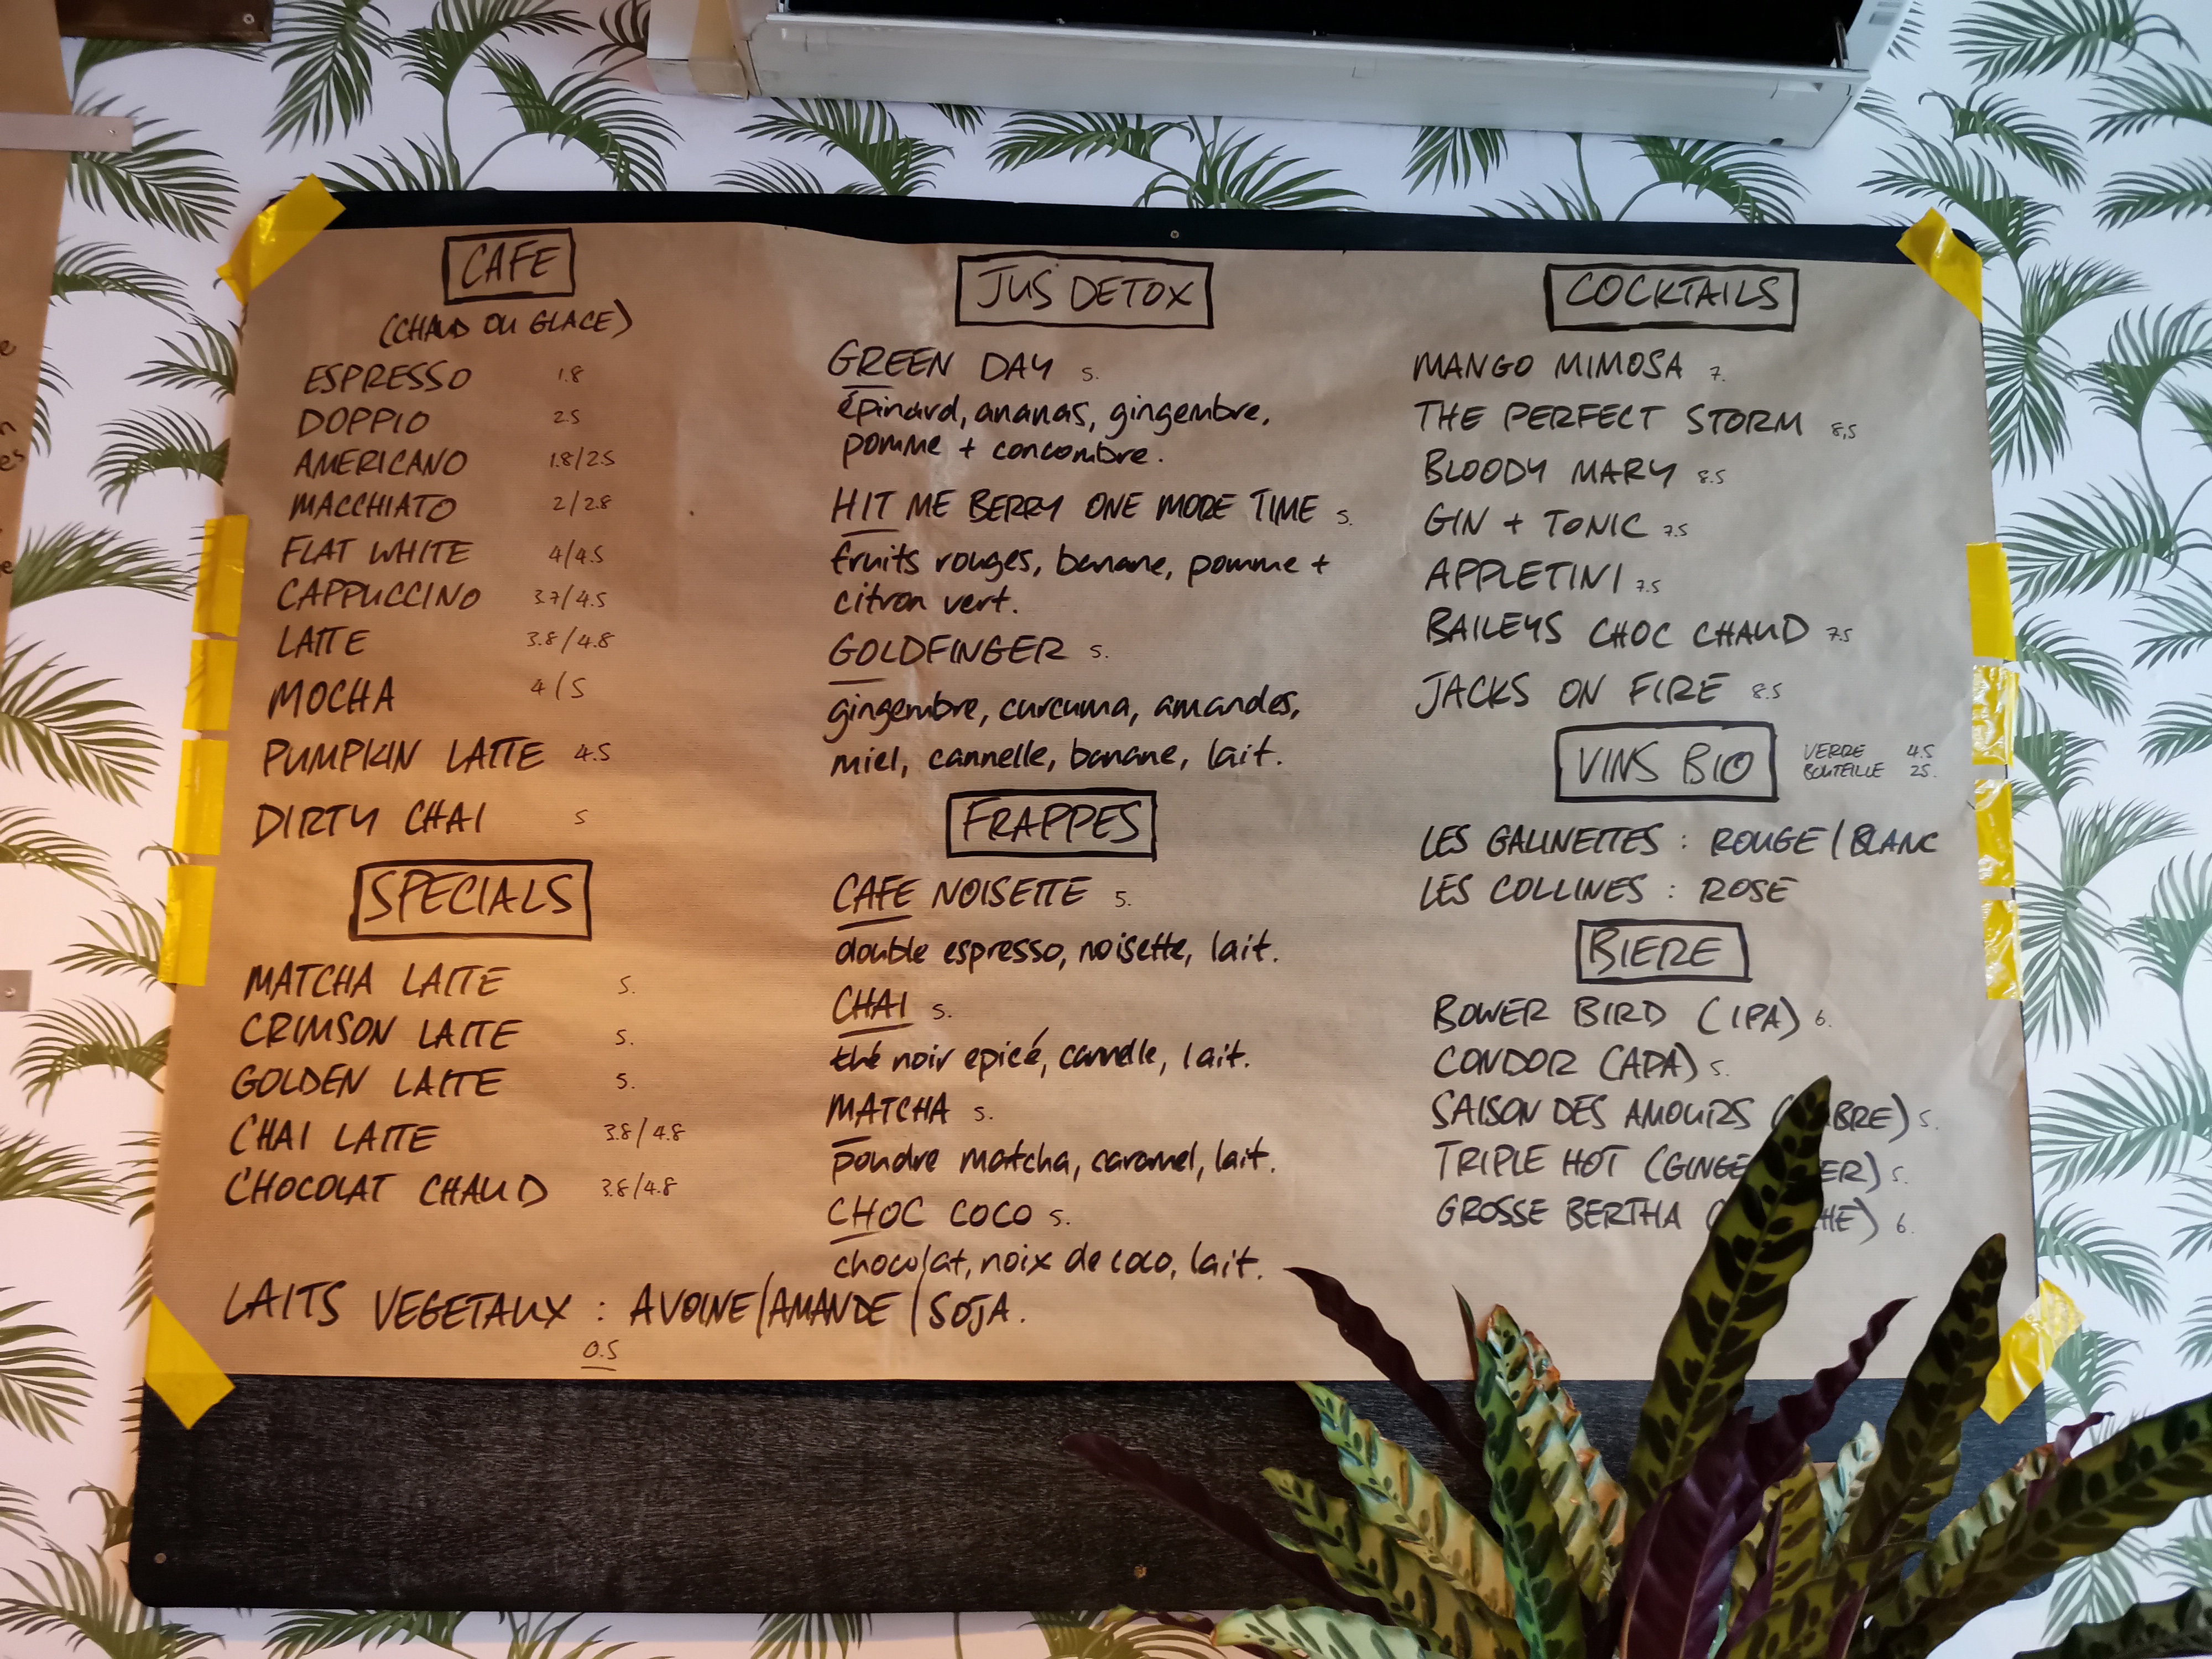 CAFE
(CHAUD OU GLACE)
ESPRESSO 1.8
DOPPIO 2.5
AMERICANO 1.8/2.5
MACCHIATO 2/2.8
FLAT WHITE 4/4.5
CAPPUCCINO 3.7/4.5
LATTE 3.8/4.8
MOCHA 4/5
PUMPKIN LATTE 4.5
DIRTY CHAI 5
SPECIALS
MATCHA LATTE 5.
CRIMSON LATTE 5.
GOLDEN LATTE 5.
CHAI LATTE 3.8/4.8
CHOCOLAT CHAUD 3.8/4.8
LAITS VEGETAUX : AVOINE/AMANDE/SOJA.
0.5
JUS DETOX
GREEN DAY 5.
épinard, ananas, gingembre,
pomme + concombre.
HIT ME BERRY ONE MORE TIME 5.
fruits rouges, banane, pomme +
citron vert.
GOLDFINGER 5.
gingembre, curcuma, amandes,
miel, cannelle, banane, lait.
FRAPPES
CAFE NOISETTE 5.
double espresso, noisette, lait.
CHAI 5.
thé noir epicé, cannelle, lait.
MATCHA 5.
poudre matcha, caramel, lait.
CHOC COCO 5.
chocolat, noix de coco, lait.
COCKTAILS
MANGO MIMOSA 7.
THE PERFECT STORM 8,5
BLOODY MARY 8.5
GIN + TONIC 7.5
APPLETINI 7.5
BAILEYS CHOC CHAUD 7.5
JACKS ON FIRE 8.5
VINS BIO
VERRE 4.5
BOUTEILLE 25.
LES GALINETTES : ROUGE/BLANC
LES COLLINES : ROSE
BIERE
BOWER BIRD (IPA) 6.
CONDOR (APA) 5.
SAISON DES AMOURS 5.
TRIPLE HOT 5.
GROSSE BERTHA 6.